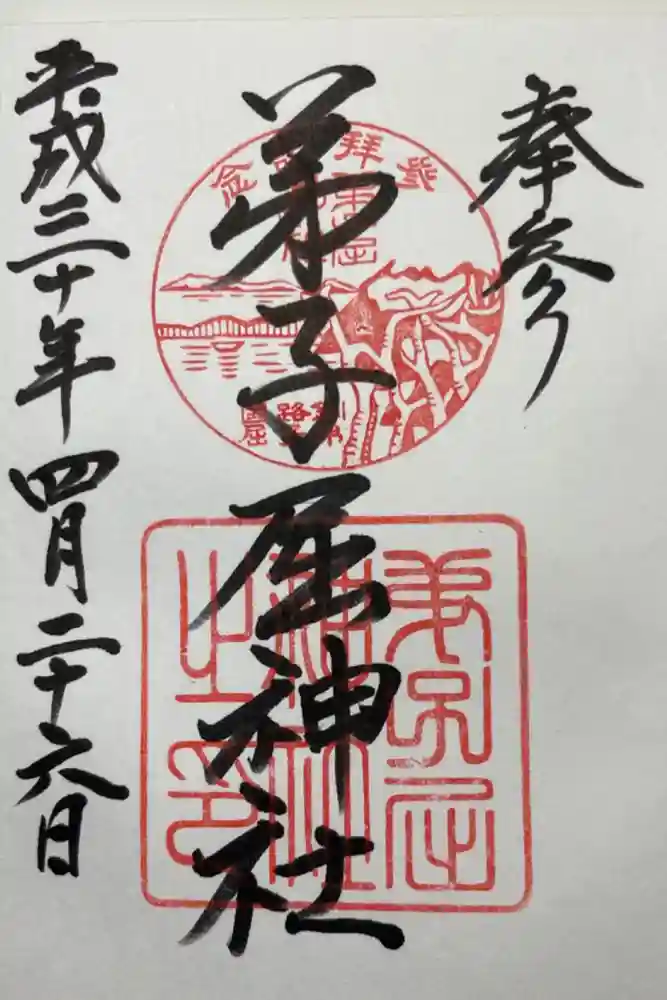 奉参
弟子屈神社
平成三十年四月二十六日
参拝記念
弟子屈
神社
之印